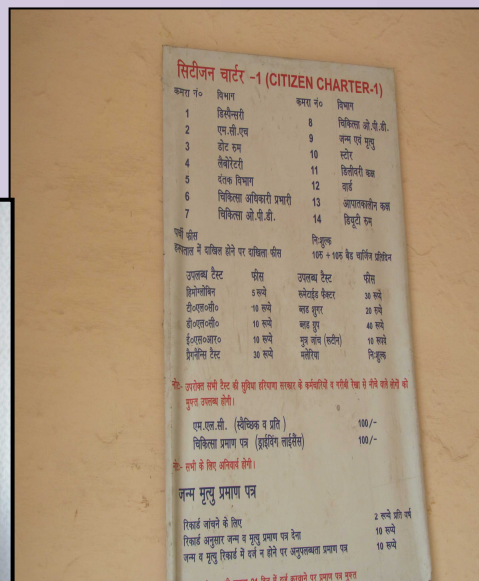 सिटीजन चार्टर -1 (CITIZEN CHARTER-1)
कमरा नं० विभाग कमरा नं० विभाग
1 डिस्पैन्सरी 8 चिकित्सा ओ.पी.डी.
2 एम.सी.एच 9 जन्म एवं मृत्यु
3 डोट रुम 10 स्टोर
4 लैबोरेटरी 11 डिलीवरी कक्ष
5 दंतक विभाग 12 वार्ड
6 चिकित्सा अधिकारी प्रभारी 13 आपातकालीन कक्ष
7 चिकित्सा ओ.पी.डी. 14 डियूटी रुम
पर्ची फीस निःशुल्क
हस्पताल में दाखिल होने पर दाखिला फीस 10रु + 10रु बैड चार्जिज प्रतिदिन
उपलब्ध टैस्ट फीस उपलब्ध टैस्ट फीस
हिमोग्लोबिन 5 रूपये रूमेटाईड फैक्टर 30 रूपये
टी०एल०सी० 10 रूपये ब्लड शुगर 20 रूपये
डी०एल०सी० 10 रूपये ब्लड ग्रुप 40 रूपये
ई०एस०आर० 10 रूपये मूत्र जांच (रूटीन) 10 रूपये
प्रैगनैन्सि टैस्ट 30 रूपये मलेरिया निःशुल्क
नोट:- उपरोक्त सभी टैस्ट की सुविधा हरियाणा सरकार के कर्मचारियों व गरीबी रेखा से नीचे वाले लोगों को
मुफ्त उपलब्ध होगी।
एम.एल.सी. (स्वैच्छिक व प्रति) 100/-
चिकित्सा प्रमाण पत्र (ड्राईविंग लाईसैंस) 100/-
नोट:- सभी के लिए अनिवार्य होगी।
जन्म मृत्यु प्रमाण पत्र
रिकार्ड जांचने के लिए 2 रूपये प्रति वर्ष
रिकार्ड अनुसार जन्म व मृत्यु प्रमाण पत्र देना 10 रूपये
जन्म व मृत्यु रिकार्ड में दर्ज न होने पर अनुपलब्धता प्रमाण पत्र 10 रूपये
21 दिन में दर्ज करवाने पर प्रमाण पत्र मुफ्त